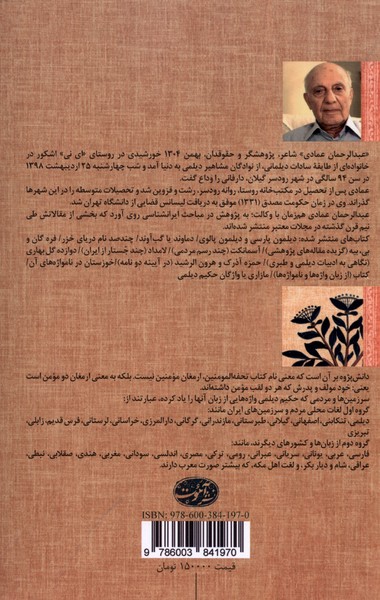 «عبدالرحمان عمادی» شاعر، پژوهشگر و حقوقدان، بهمن ۱۳۰۴ خورشیدی در روستای «ای نی» اشکور در
خانواده‌ای از طایفهٔ سادات دیلمانی، از نوادگان مشاهیر دیلمی به دنیا آمد و شب چهارشنبه ۲۵ اردیبهشت ۱۳۹۸
در سن ۹۴ سالگی در شهر رودسر گیلان، دارفانی را وداع گفت.
عمادی پس از تحصیل در مکتب‌خانه روستا، روانه رودسر، رشت و قزوین شد و تحصیلات متوسطه را در این شهرها
گذراند. وی در زمان حکومت مصدق (۱۳۳۱) موفق به دریافت لیسانس قضایی از دانشگاه تهران شد.
عبدالرحمان عمادی همزمان با وکالت، به پژوهش در مباحث ایرانشناسی روی آورد که بخشی از مقالاتش طی
نیم قرن گذشته در مجلات معتبر منتشر شده‌اند.
کتاب‌های منتشر شده: دیلمون پارسی و دیلمون پالوی/ دماوند یا گب‌آوند/ چندصد نام دریای خزر/ فره گان و
بی، بیه (گزیده مقاله‌های پژوهشی)/ آسمانکت (چند رسم مردمی)/ لامداد (چند جستار از ایران)/ دوازده گل‌بهاری
(نگاهی به ادبیات دیلمی و طبری)/ حمزه آذرک و هرون الرشید (در آیینه دو نامه)/خوزستان در نامواژه‌های آن/
کتاب (از زبان واژه‌ها و نامواژه‌ها)/ مازاری یا واژگان حکیم دیلمی
دانش‌پژوه بر آن است که معنی نام کتاب تحفه‌المومنین، ارمغان مؤمنین نیست. بلکه به معنی ارمغان دو مؤمن است
یعنی: خود مولف و پدرش که هر دو لقب مؤمن داشته‌اند.
سرزمین‌ها و مردمی که حکیم دیلمی واژه‌هایی از زبان آنها را یاد کرده، عبارتند از:
گروه اول لغات محلی مردم و سرزمین‌های ایران مانند:
دیلمی، تنکابنی، اصفهانی، گیلانی، طبرستانی، مازندرانی، گرگانی، دارالمرزی، خراسانی، لرستانی، فرس قدیم، زابلی،
تبریزی
گروه دوم از زبان‌ها و کشورهای دیگرند، مانند:
فارسی، عربی، یونانی، سریانی، عبرانی، رومی، ترکی، مصری، اندلسی، سودانی، مغربی، هندی، صقلابی، نبطی،
عراقی، شام و دیار بکر، و لغت اهل مکه، که بیشتر صورت معرب دارند.
نشر آموت
ISBN: 978-600-384-197-0
9 786003 841970
قیمت ۱۵۰۰۰۰ تومان